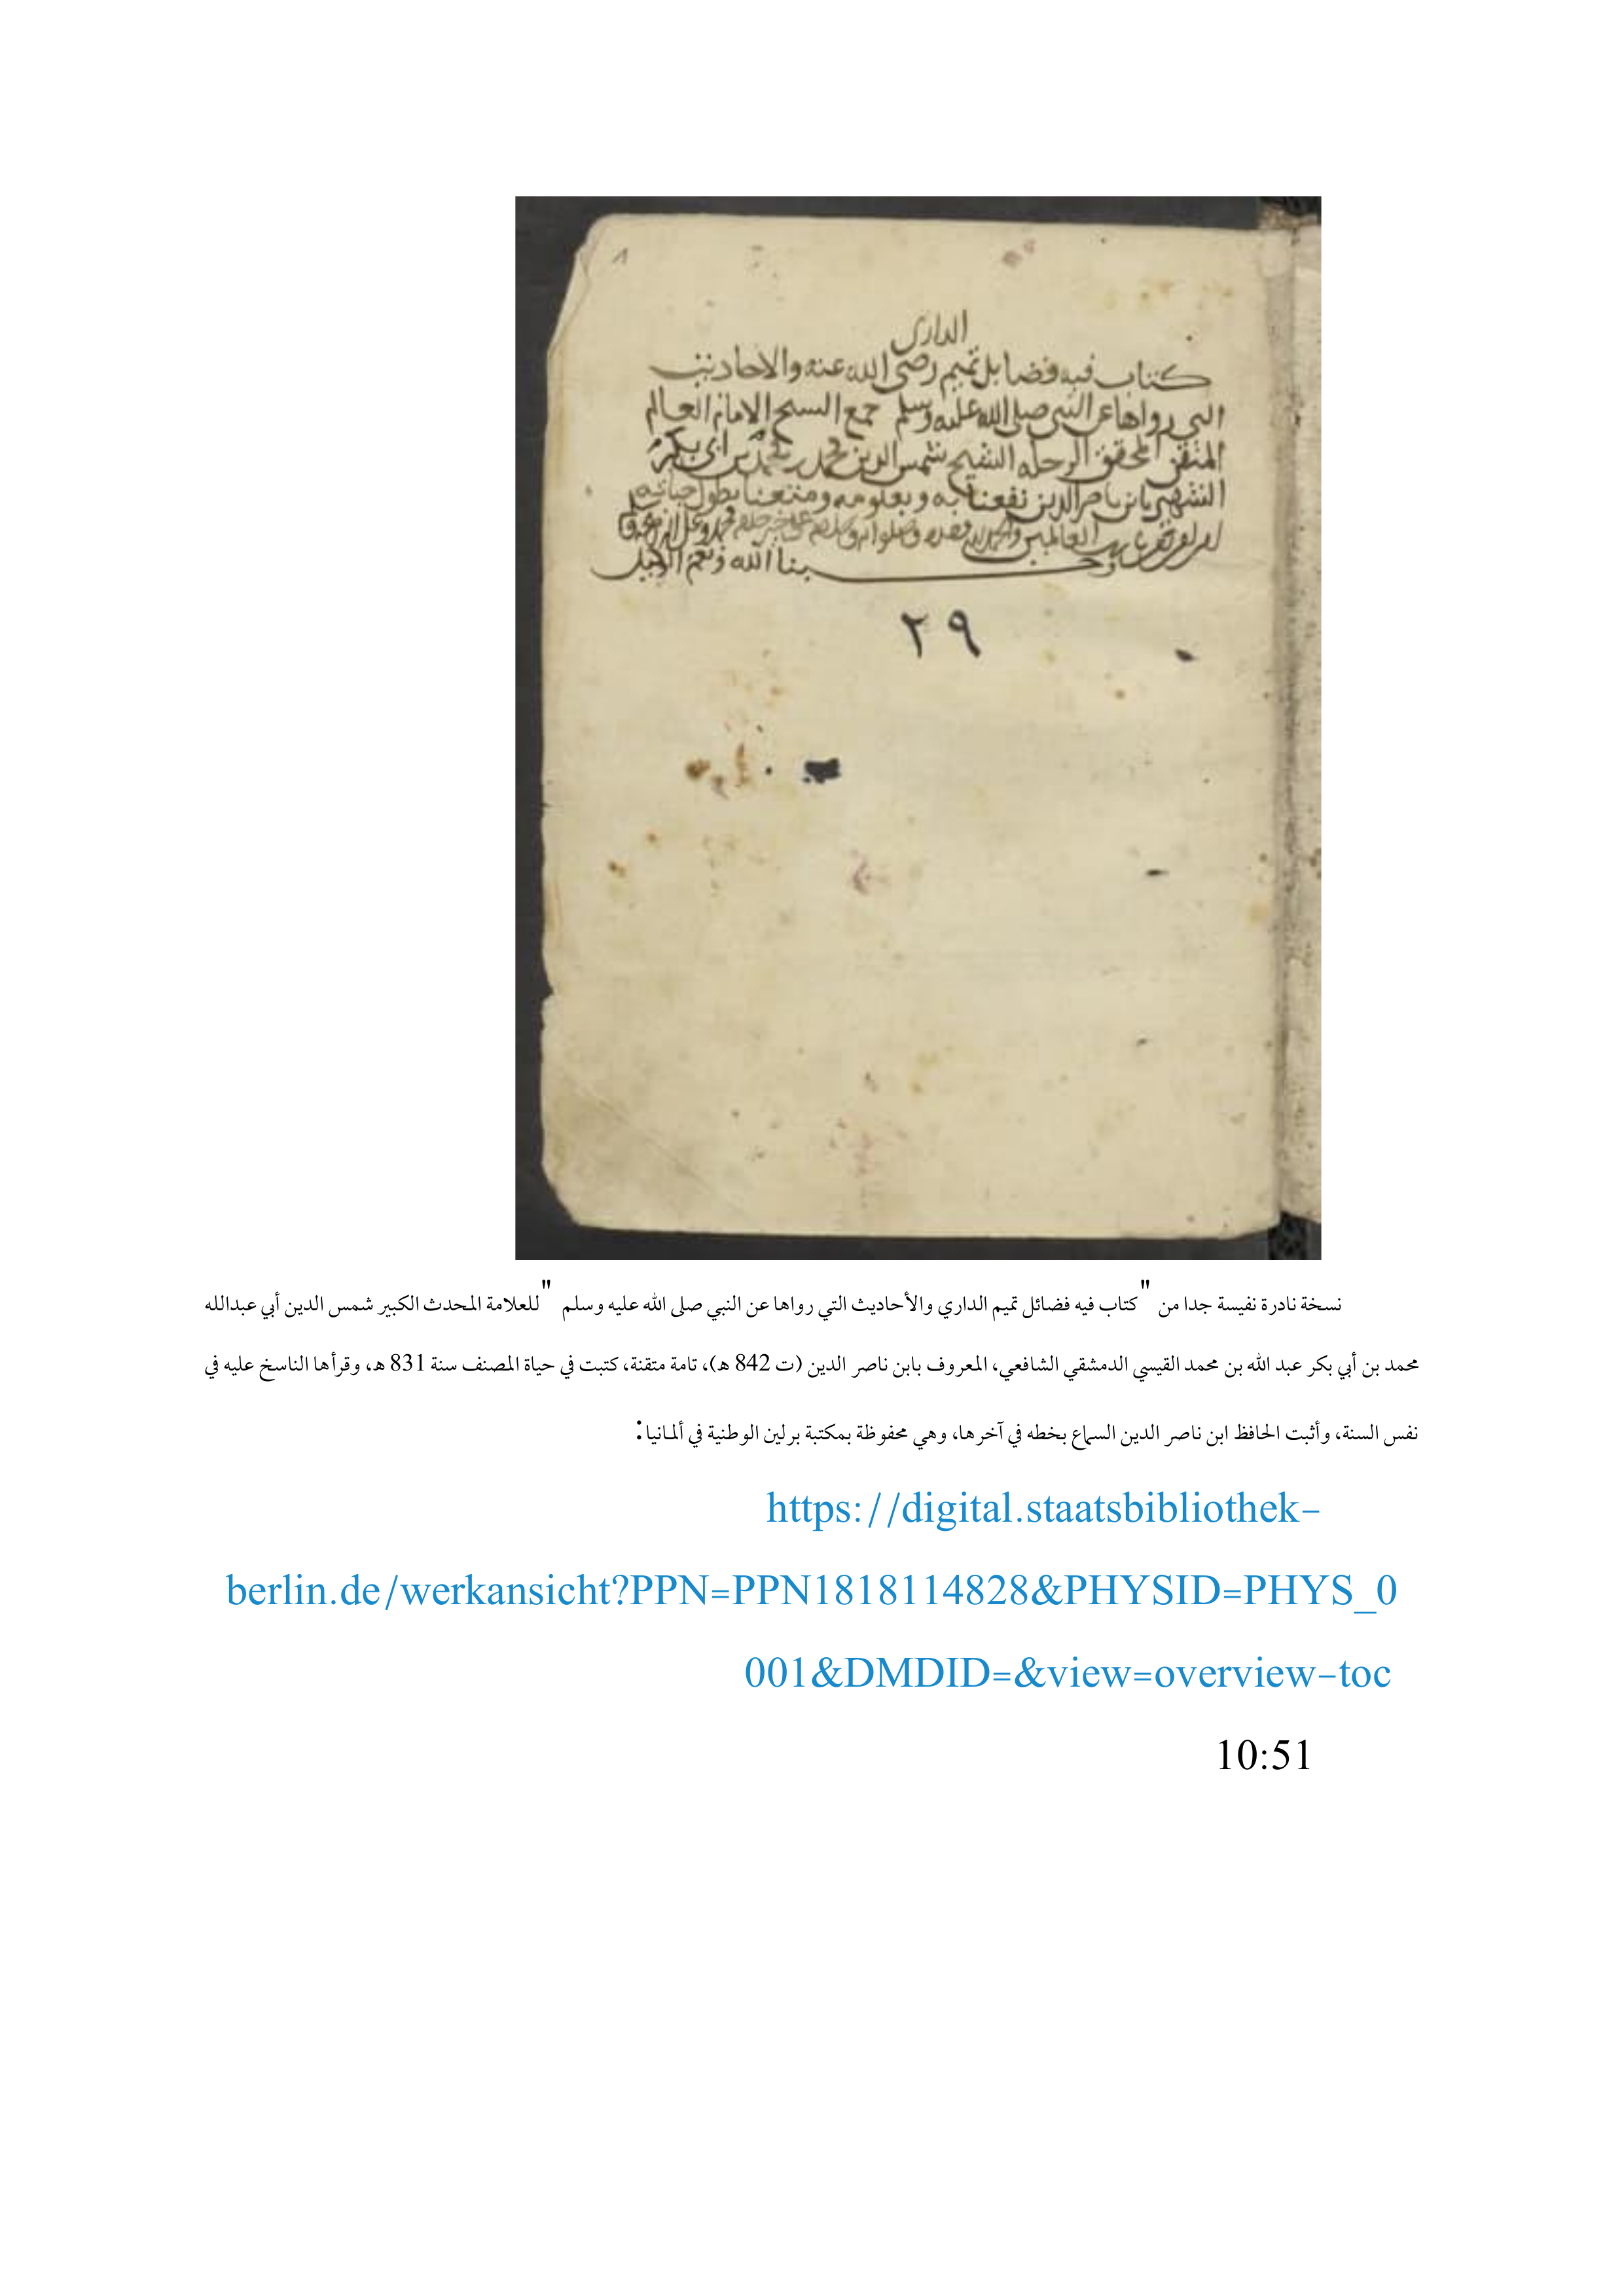 الدارى
كتاب فيه فضايل تميم رضى الله عنه والاحاديث
التى رواها عن النبى صلى الله عليه وسلم جمع الشيخ الامام العالم
المتقن المحقق الرحله الشيخ شمس الدين محمد بن ابى بكر
الشهير بابن ناصر الدين نفعنا به وبعلومه ومتعنا بطول حياته
العالمين
وحسبنا الله ونعم الوكيل
٢٩
نسخة نادرة نفيسة جدا من "كتاب فيه فضائل تميم الداري والأحاديث التي رواها عن النبي صلى الله عليه وسلم " للعلامة المحدث الكبير شمس الدين أبي عبدالله
محمد بن أبي بكر عبد الله بن محمد القيسي الدمشقي الشافعي، المعروف بابن ناصر الدين (ت 842 هـ)، تامة متقنة، كتبت في حياة المصنف سنة 831 هـ، وقرأها الناسخ عليه في
نفس السنة، وأثبت الحافظ ابن ناصر الدين السماع بخطه في آخرها، وهي محفوظة بمكتبة برلين الوطنية في ألمانيا:
https://digital.staatsbibliothek-
berlin.de/werkansicht?PPN=PPN1818114828&PHYSID=PHYS_0
001&DMDID=&view=overview-toc
10:51